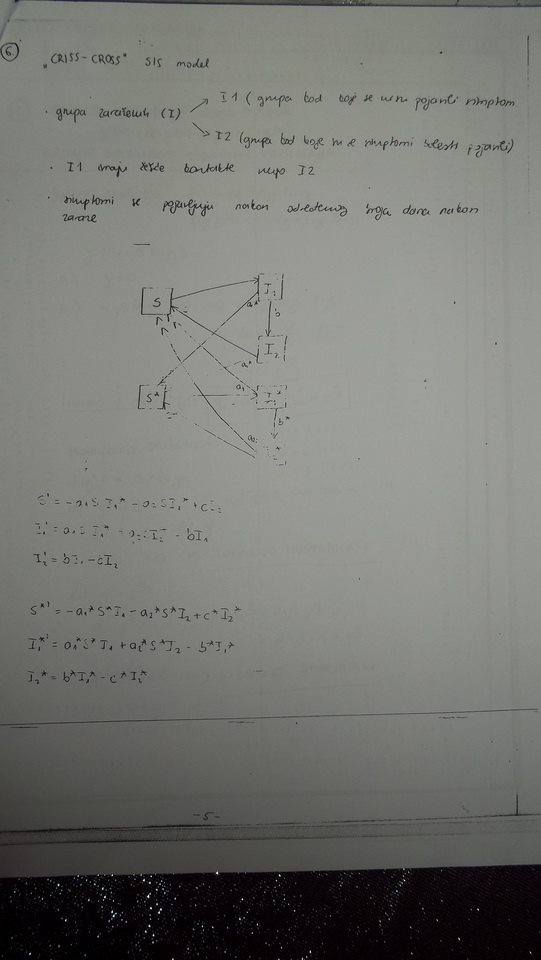 6.
„CRISS-CROSS" SIS model
· grupa zaraženih (I)
I1 (grupa kod koje se nisu pojavili simptomi
I2 (grupa kod koje su se simptomi bolesti pojavili)
· I1 imaju češće kontakte nego I2
· simptomi se pojavljuju nakon određenog broja dana nakon
zaraze
S
I₁
a*
b
I₂
a*
S*
a₁
I₁*
b*
a₂
S' = -a₁SI₁* - a₂SI₂* + cI₂
I₁' = a₁SI₁* + a₂SI₂* - bI₁
I₂' = bI₁ - cI₂
S*' = -a₁*S*I₁ - a₂*S*I₂ + c*I₂*
I₁*' = a₁*S*I₁ + a₂*S*I₂ - b*I₁*
I₂* = b*I₁* - c*I₂*
-5-